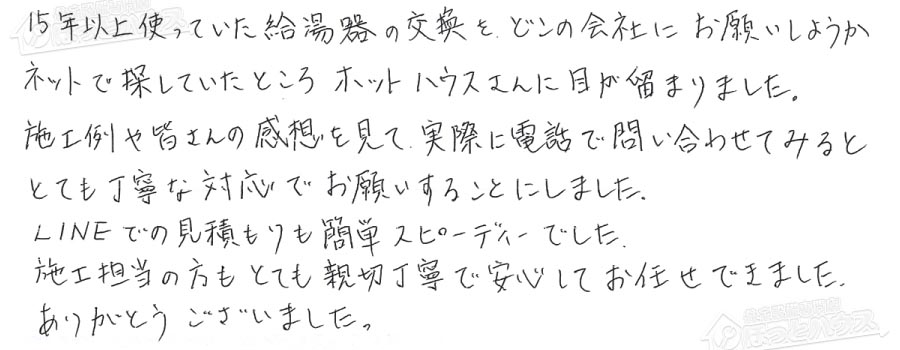 15年以上使っていた給湯器の交換を、どこの会社にお願いしようか
ネットで探していたところ ホットハウスさんに目が留まりました。
施工例や皆さんの感想を見て、実際に電話で問い合わせてみると
とても丁寧な対応でお願いすることにしました。
LINEでの見積もりも簡単スピーディーでした。
施工担当の方もとても親切丁寧で安心してお任せできました。
ありがとうございました。
ほっとハウス